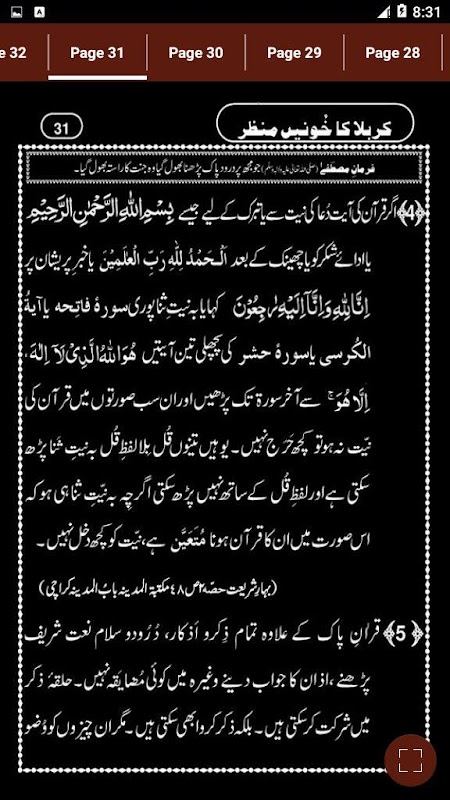 8:31
Page 32
Page 31
Page 30
Page 29
Page 28
31
کربلا کا خُونیں منظر
فرمانِ مصطفٰے (صلی اللہ تعالیٰ علیہ والہ وسلم) جو مجھ پر درود پاک پڑھنا بھول گیا وہ جنت کا راستہ بھول گیا۔
﴿4﴾ اگر قرآن کی آیت دُعا کی نیت سے یا تبرک کے لیے جیسے بِسْمِ اللّٰهِ الرَّحْمٰنِ الرَّحِيْمِ
یا ادائے شکر کو یا چھینک کے بعد اَلْحَمْدُ لِلّٰهِ رَبِّ الْعٰلَمِيْنَ یا خبرِ پریشان پر
اِنَّا لِلّٰهِ وَاِنَّآ اِلَيْهِ رٰجِعُوْنَ کہا یا بہ نیتِ ثنا پوری سورۂ فاتحہ یا آیۃُ
الکُرسی یا سورۂ حشر کی پچھلی تین آیتیں هُوَ اللّٰهُ الَّذِيْ لَآ اِلٰهَ
اِلَّا هُوَ ۚ سے آخر سورۃ تک پڑھیں اور ان سب صورتوں میں قرآن کی
نیّت نہ ہو تو کچھ حَرَج نہیں۔ یوہیں تینوں قُل بِلا لفظِ قُل بہ نیتِ ثَنا پڑھ
سکتی ہے اور لفظِ قُل کے ساتھ نہیں پڑھ سکتی اگرچِہ بہ نیّتِ ثنا ہی ہو کہ
اس صورت میں ان کا قرآن ہونا مُتَعَیَّن ہے، نیّت کو کچھ دخل نہیں۔
(بہارِ شریعت حصّہ ۲ ص ۴۸ مکتبۃ المدینہ بابُ المدینہ کراچی)
﴿5﴾ قرانِ پاک کے علاوہ تمام ذِکر و اَذکار، دُرُود و سلام نعت شریف
پڑھنے، اذان کا جواب دینے وغیرہ میں کوئی مُضایَقہ نہیں۔ حلقۂ ذکر
میں شرکت کر سکتی ہیں۔ بلکہ ذکر کروا بھی سکتی ہیں۔ مگر ان چیزوں کو وُضو